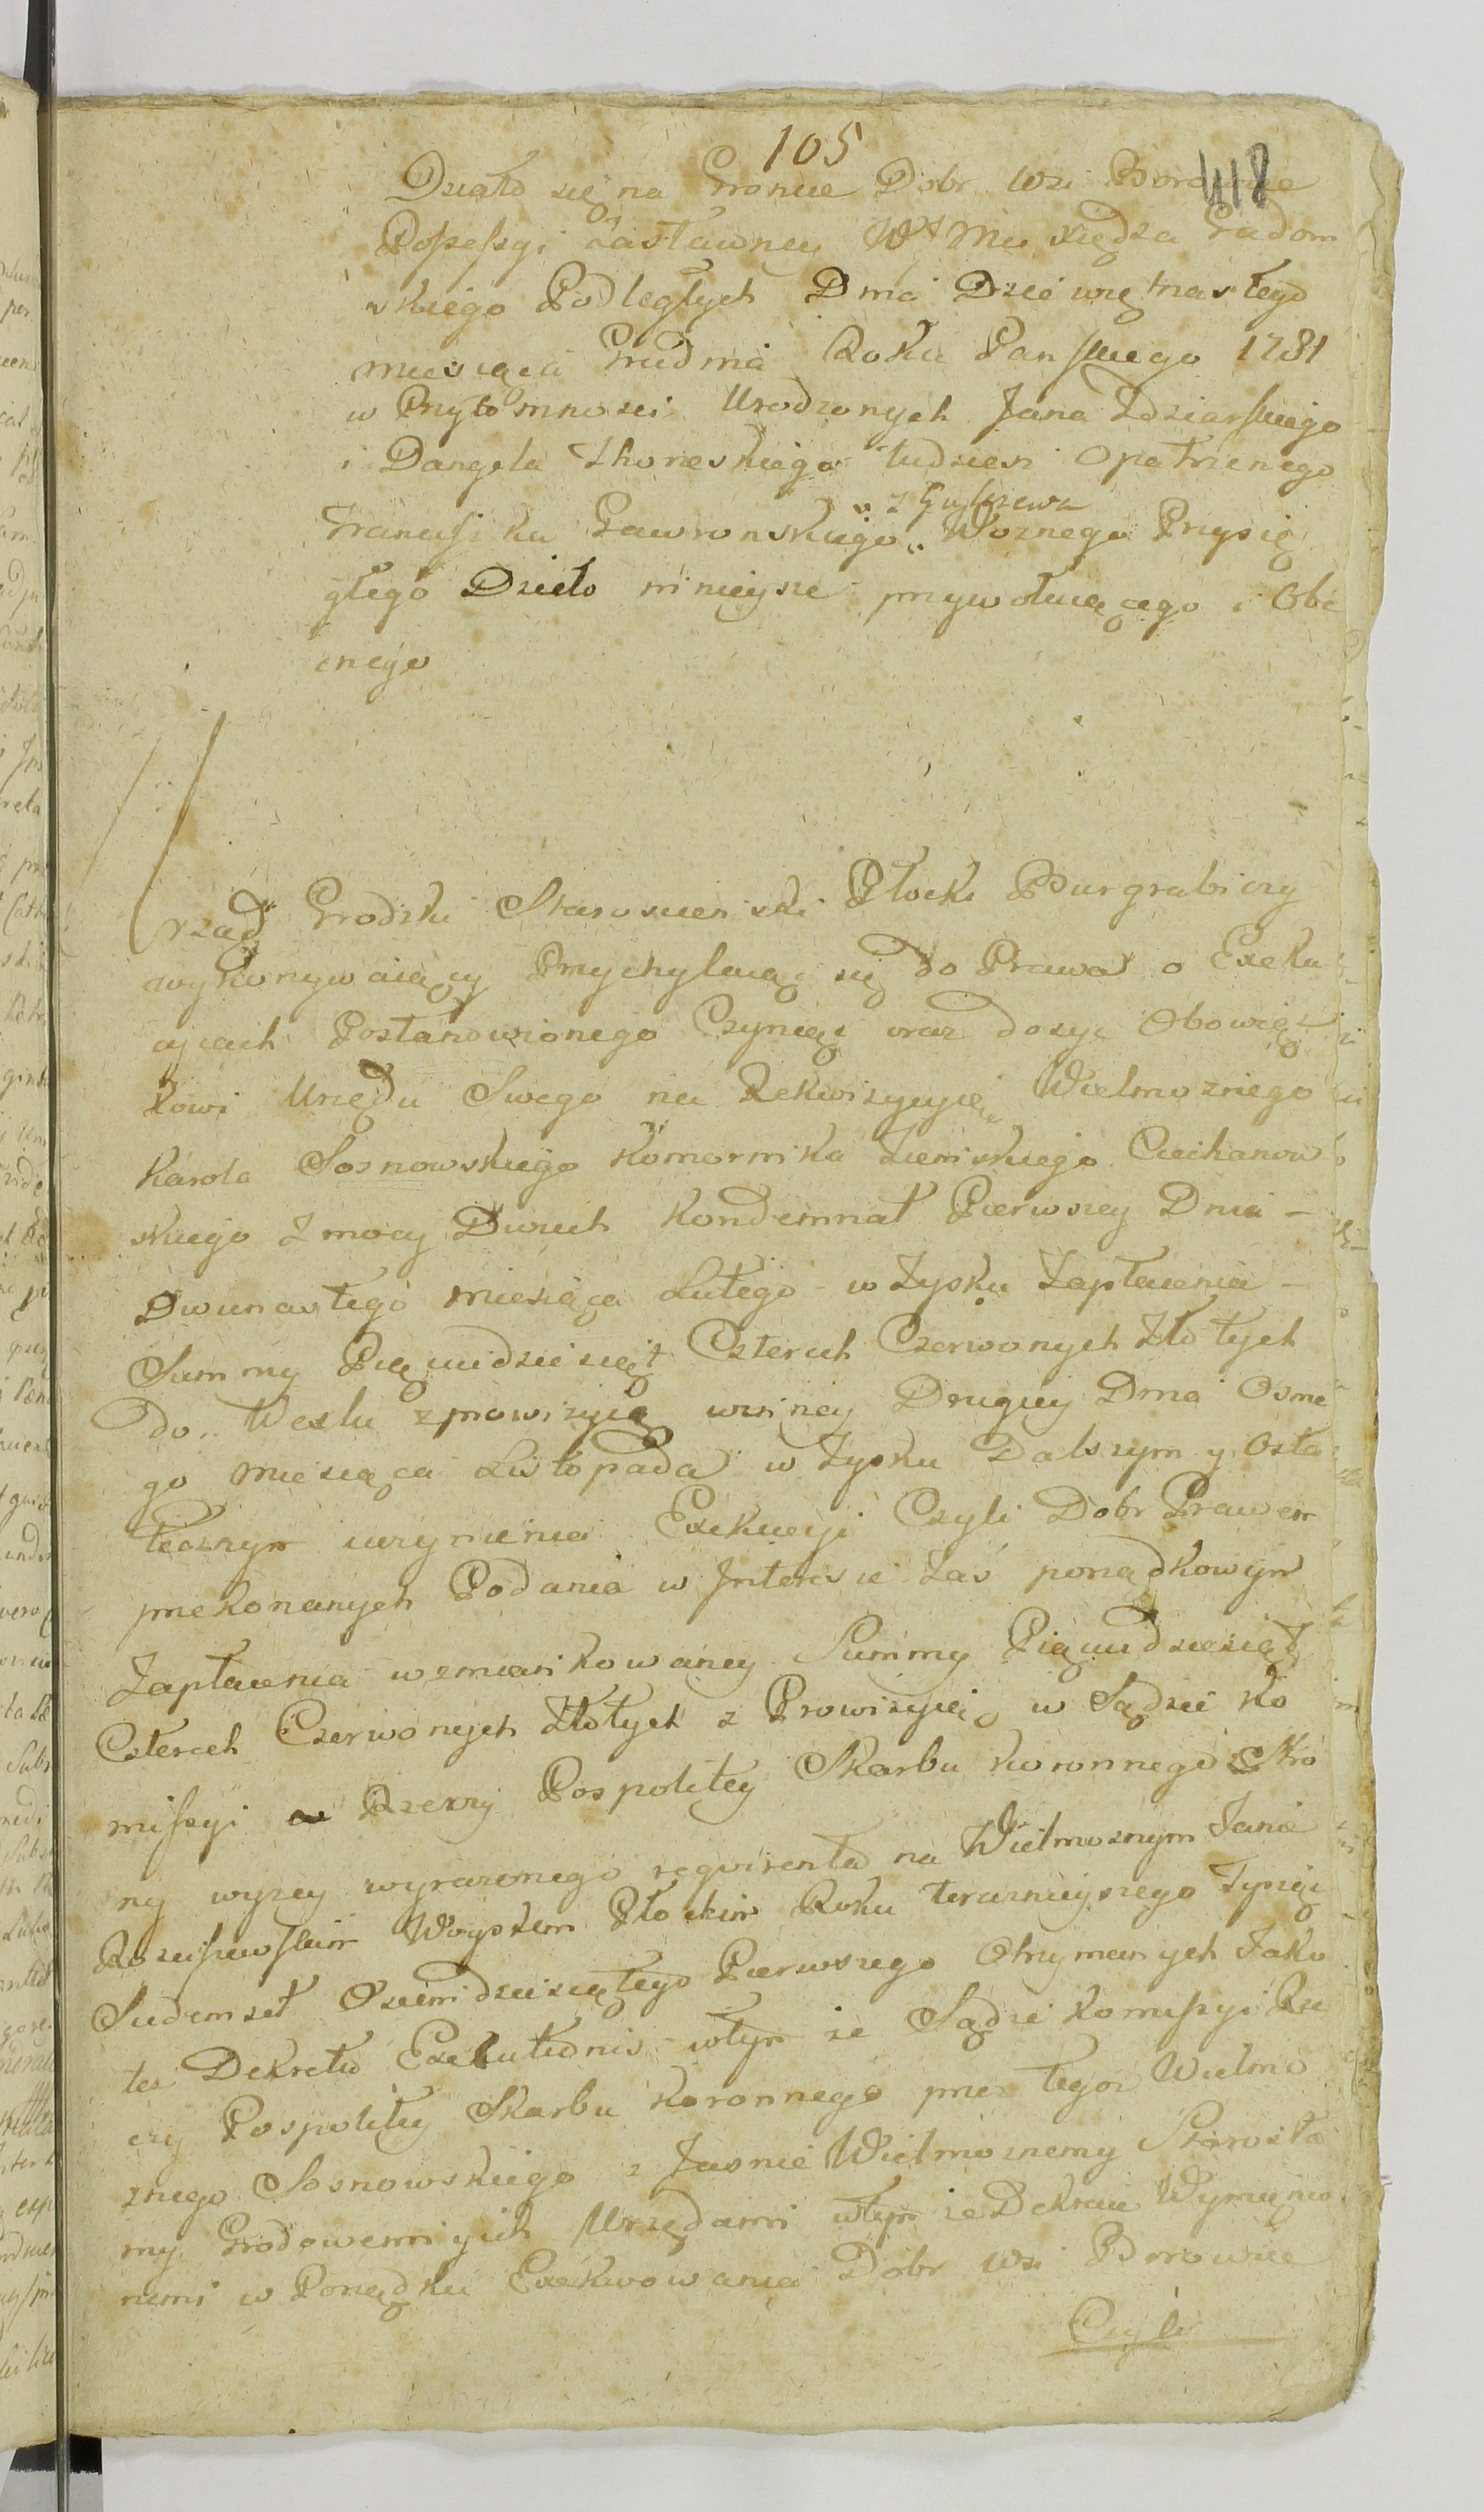 105
418
Działo się na Groncie Dobr Wsi Borowice
Possessyi Zastawney WJMci Xiędza Gadom
skiego Podległych Dnia Dziewiętnastego
miesiąca Grudnia Roku Panskiego 1781
w Przytomnosci Urodzonych Jana Zdziarskiego
i Dangela tudziesz Opatrznego
Franciszka Gawronskiego Woznego Przysię
głego Dzieło ninieysze przywołuiącego i Obe
cnego
rząd Grodzki Starosciński Płocki Burgrabiczy
wykonywaiący Przychylaiąc się do Prawa o Exeku
cyiach Postanowionego Czyniąc oraz dosyc Obowiąz
kowi Urzędu Swego na Rekwizycyią Wielmoznego
Karola Sosnowskiego Komornika Ziemskiego Ciechanow
skiego z mocy Dwuch Kondemnat Pierwszey Dnia -
Dwunastego miesiąca Lutego - w Zysku Zapłacenia -
Summy Pięciudziesiąt Czterech Czerwonych Złotych
do Wexlu z prowizyią winney Drugiey Dnia Osme
go miesiąca Listopada w Zysku Dalszym y Osta
tecznym uczynienia Exekucyi Czyli Dobr Prawem
przekonanych Podania w Jnteresie Zaś porządkowym
Zapłacenia wzmiankowaney Summy Pięciudziesiąt
Czterech Czerwonych Złotych z Prowizyią w Sądzie Ko
missyi Rzeczy Pospolitey Skarbu Koronnego z Stro
ny wyzey wyrazonego reqvirenta na Wielmoznym Janie
Rosciszewskim Woyskim Płockim Roku teraznieyszego Tysiąc
Siedemset Osiemdziesiątego Pierwszego Otrzymanych Jako
tez Dekretu Exekutionis w tym ze Sądzie Komissyi Rze
czy Pospolitey Skarbu Koronnego przez tegoz Wielmo
znego Sosnowskiego z Jasnie Wielmoznemy Starosta
my Grodowemi y ich Urzędami w tym ze Dekrecie Wymienio
nemi w Porządku Exekwowania Dobr Wsi Borowice
Czyli